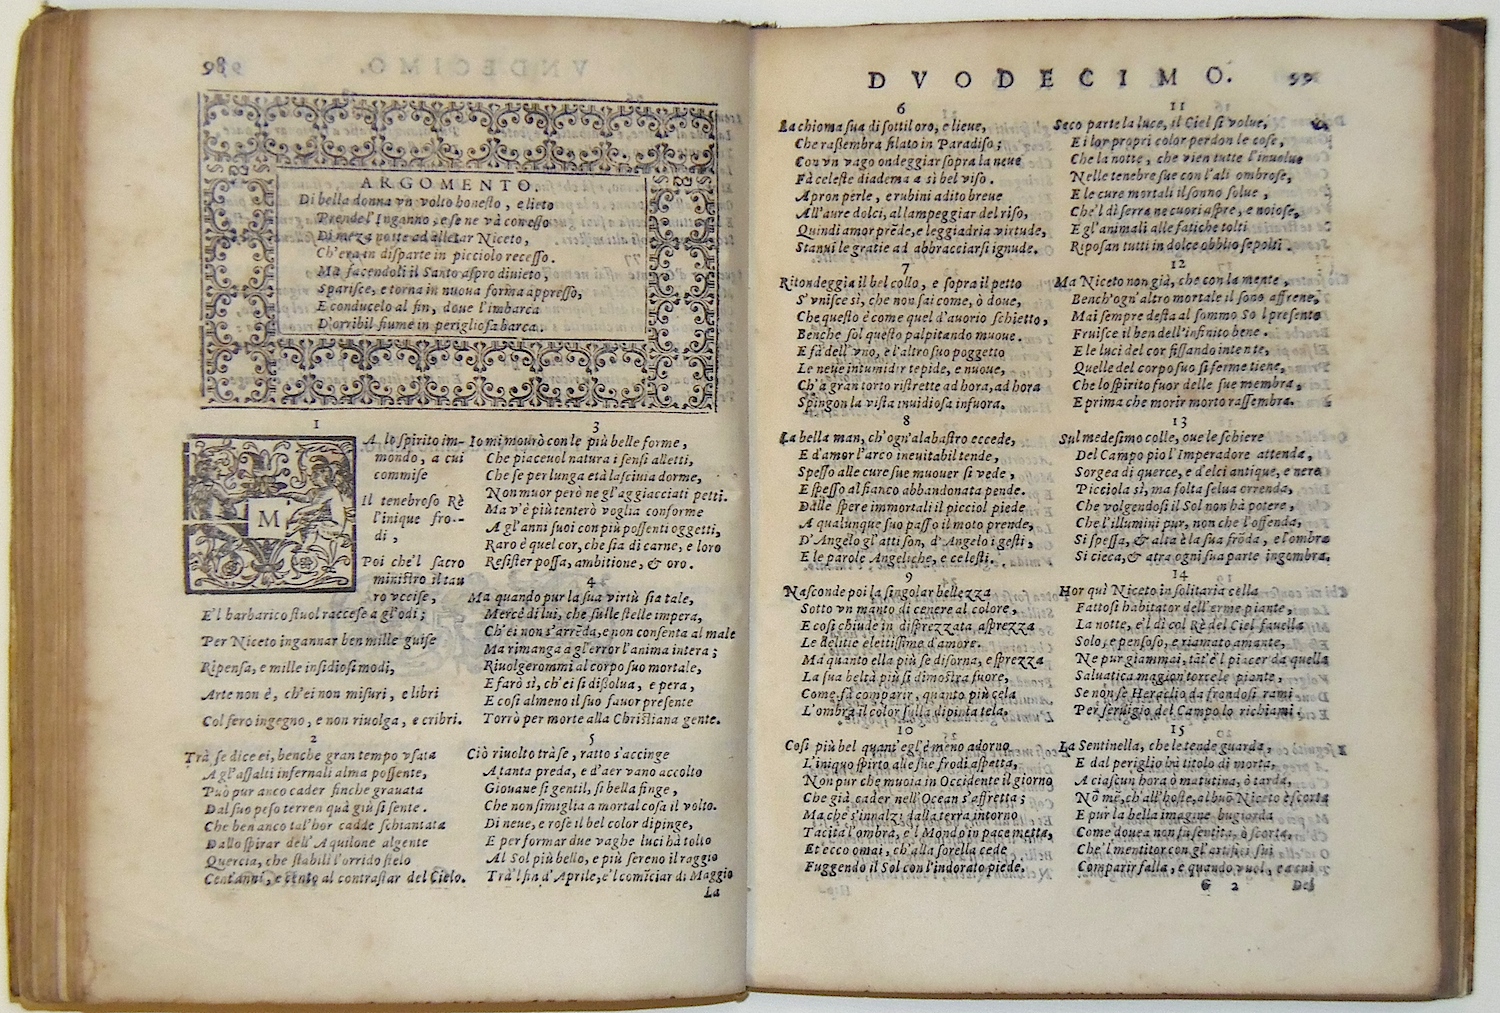 98
ARGOMENTO.
Di bella donna vn volto honesto, e lieto
Prende l'Inganno, e se ne và con esso
Di meza notte ad alletar Niceto,
Ch'era in disparte in picciolo recesso.
Ma facendoli il Santo aspro diuieto,
Sparisce, e torna in nuoua forma appresso,
E conducelo al fin, doue l'imbarca
D'orribil fiume in perigliosa barca.
1
MA lo spirito im-
mondo, a cui
commise
Il tenebroso Rè
l'inique fro-
di,
Poi che'l sacro
ministro il tau
ro vccise,
E'l barbarico stuol raccese a gl'odi;
Per Niceto ingannar ben mille guise
Ripensa, e mille insidiosi modi,
Arte non è, ch'ei non misuri, e libri
Col fero ingegno, e non riuolga, e cribri.
2
Trà se dice ei, benche gran tempo vsata
A gl'assalti infernali alma possente,
Può pur anco cader finche grauata
Dal suo peso terren quà giù si sente.
Che ben anco tal'hor cadde schiantata
Dallo spirar dell'Aquilone algente
Quercia, che stabilì l'orrido stelo
Cent'anni, e cento al contrastar del Cielo.
3
Io mi mourò con le più belle forme,
Che piaceuol natura i sensi alletti,
Che se per lunga età lasciuia dorme,
Non muor però ne gl'aggiacciati petti.
Ma v'è più tenterò voglia conforme
A gl'anni suoi con più possenti oggetti,
Raro è quel cor, che sia di carne, e loro
Resister possa, ambitione, & oro.
4
Ma quando pur la sua virtù sia tale,
Mercè di lui, che sulle stelle impera,
Ch'ei non s'arrẽda, e non consenta al male
Ma rimanga a gl'error l'anima intera;
Riuolgerommi al corpo suo mortale,
E farò sì, ch'ei si dissolua, e pera,
E così almeno il suo fauor presente
Torrò per morte alla Christiana gente.
5
Ciò riuolto trà se, ratto s'accinge
A tanta preda, e d'aer vano accolto
Giouane sì gentil, sì bella finge,
Che non simiglia a mortal cosa il volto.
Di neue, e rose il bel color dipinge,
E per formar due vaghe luci hà tolto
Al Sol più bello, e più sereno il raggio
Trà'l fin d'Aprile, e'l comĩciar di Maggio
La
DVODECIMO.
99
6
La chioma sua di sottil oro, e lieue,
Che rassembra filato in Paradiso;
Con vn vago ondeggiar sopra la neue
Fà celeste diadema a sì bel viso.
Apron perle, e rubini adito breue
All'aure dolci, al lampeggiar del riso,
Quindi amor prẽde, e leggiadria virtude,
Stanui le gratie ad abbracciarsi ignude.
7
Ritondeggia il bel collo, e sopra il petto
S'vnisce sì, che non sai come, ò doue,
Che questo è come quel d'auorio schietto,
Benche sol questo palpitando muoue.
E fà dell'vno, e l'altro suo poggetto
Le neue intumidir tepide, e nuoue,
Ch'a gran torto ristrette ad hora, ad hora
Spingon la vista inuidiosa infuora.
8
La bella man, ch'ogn'alabastro eccede,
E d'amor l'arco ineuitabil tende,
Spesso alle cure sue muouer si vede,
E spesso al fianco abbandonata pende.
Dalle spere immortali il picciol piede
A qualunque suo passo il moto prende,
D'Angelo gl'atti son, d'Angelo i gesti,
E le parole Angeliche, e celesti.
9
Nasconde poi la singolar bellezza
Sotto vn manto di cenere al colore,
E così chiude in disprezzata asprezza
Le delitie elettissime d'amore.
Ma quanto ella più se disorna, e sprezza
La sua beltà più si dimostra fuore,
Come fà comparir, quanto più cela
L'ombra il color sulla dipinta tela.
10
Così più bel quant'egl'è meno adorno
L'iniquo spirto alle sue frodi aspetta,
Non pur che muoia in Occidente il giorno
Che già cader nell'Ocean s'affretta;
Ma che s'innalzi dalla terra intorno
Tacita l'ombra, e'l Mondo in pace metta,
Et ecco omai, ch'alla sorella cede
Fuggendo il Sol con l'indorato piede.
11
Seco parte la luce, il Ciel si volue,
E i lor propri color perdon le cose,
Che la notte, che vien tutte l'inuolue
Nelle tenebre sue con l'ali ombrose,
E le cure mortali il sonno solue,
Che'l dì serra ne cuori aspre, e noiose,
E gl'animali alle fatiche tolti
Riposan tutti in dolce obblio sepolti.
12
Ma Niceto non già, che con la mente,
Bench'ogn'altro mortale il sono affrene,
Mai sempre desta al sommo Sol presente
Fruisce il ben dell'infinito bene.
E le luci del cor fissando intente,
Quelle del corpo suo sì ferme tiene,
Che lo spirito fuor delle sue membra,
E prima che morir morto rassembra.
13
Sul medesimo colle, oue le schiere
Del Campo pio l'Imperadore attenda,
Sorgea di querce, e d'elci antique, e nere
Picciola sì, ma folta selua orrenda,
Che volgendosi il Sol non hà potere,
Che l'illumini pur, non che l'offenda,
Sì spessa, & alta è la sua frõda, e l'ombra
Sì cieca, & atra ogni sua parte ingombra.
14
Hor quì Niceto in solitaria cella
Fattosi habitator dell'erme piante,
La notte, e'l dì col Rè del Ciel fauella
Solo, e pensoso, e riamato amante,
Ne pur giammai, tãt'è'l piacer da quella
Saluatica magion torce le piante,
Se non se Heraclio da frondosi rami
Per seruigio del Campo lo richiami.
15
La Sentinella, che le tende guarda,
E dal periglio hà titolo di morta,
A ciascun hora ò matutina, ò tarda,
Nõ mẽ, ch'all'hoste, al buõ Niceto è scorta
E pur la bella imagine bugiarda
Come douea non fu sentita, ò scorta,
Che'l mentitor con gl'artifici sui
Comparir falla, e quando vuol, e a cui
G 2
Del